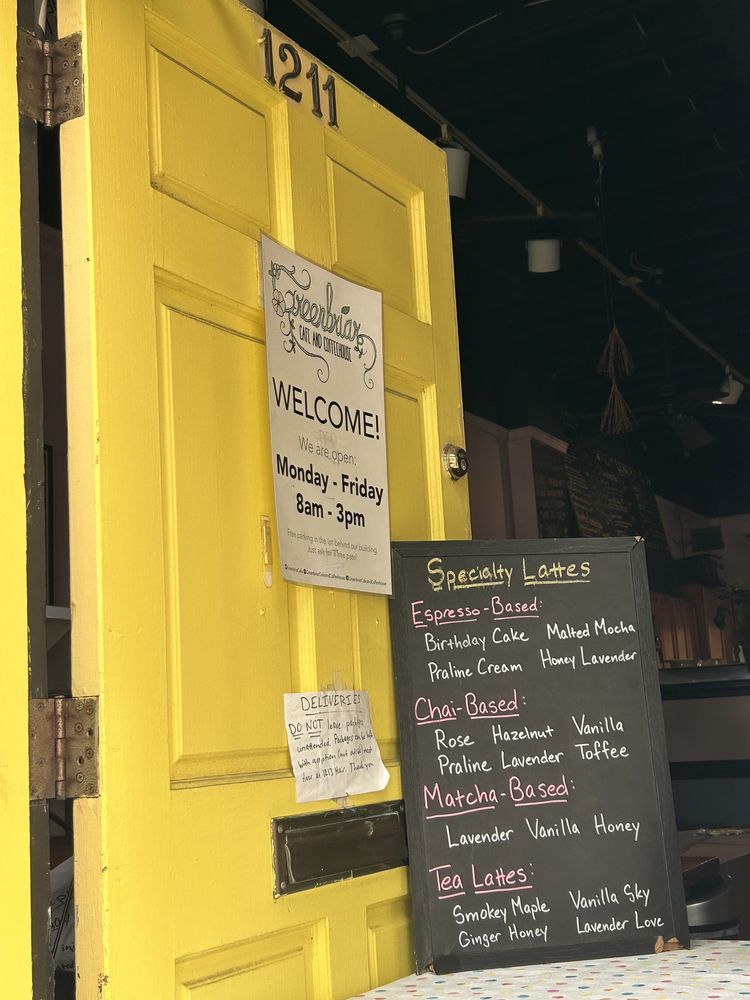 1211
Greenbriar
CAFE AND COFFEEHOUSE
WELCOME!
We are open:
Monday - Friday
8am - 3pm
Free parking in the lot behind our building.
Just ask for free pass!
DELIVERIES
DO NOT leave packages
unattended. Packages can be left
with reception (not outside) next
door at 1213 Hair. Thank you
Specialty Lattes
Espresso-Based:
Birthday Cake Malted Mocha
Praline Cream Honey Lavender
Chai-Based:
Rose Hazelnut Vanilla
Praline Lavender Toffee
Matcha-Based:
Lavender Vanilla Honey
Tea Lattes:
Smokey Maple Vanilla Sky
Ginger Honey Lavender Love